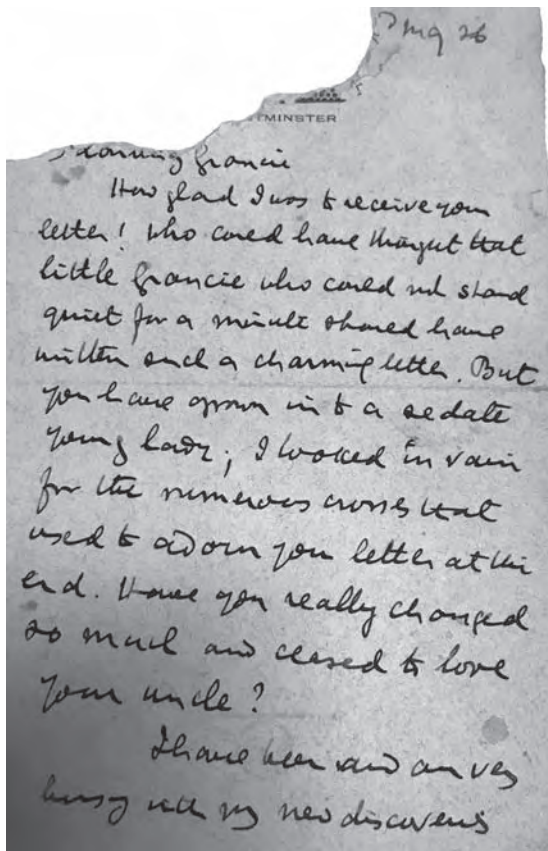 Aug 26
TMINSTER
Francie
How glad I was to receive your
letter! Who could have thought that
little Francie who could not stand
quiet for a minute should have
written such a charming letter. But
you have grown in to a sedate
young lady; I looked in vain
for the numerous crosses that
used to adorn your letter at the
end. Have you really changed
so much and ceased to love
your uncle?
I have been and am very
busy with my new discoveries